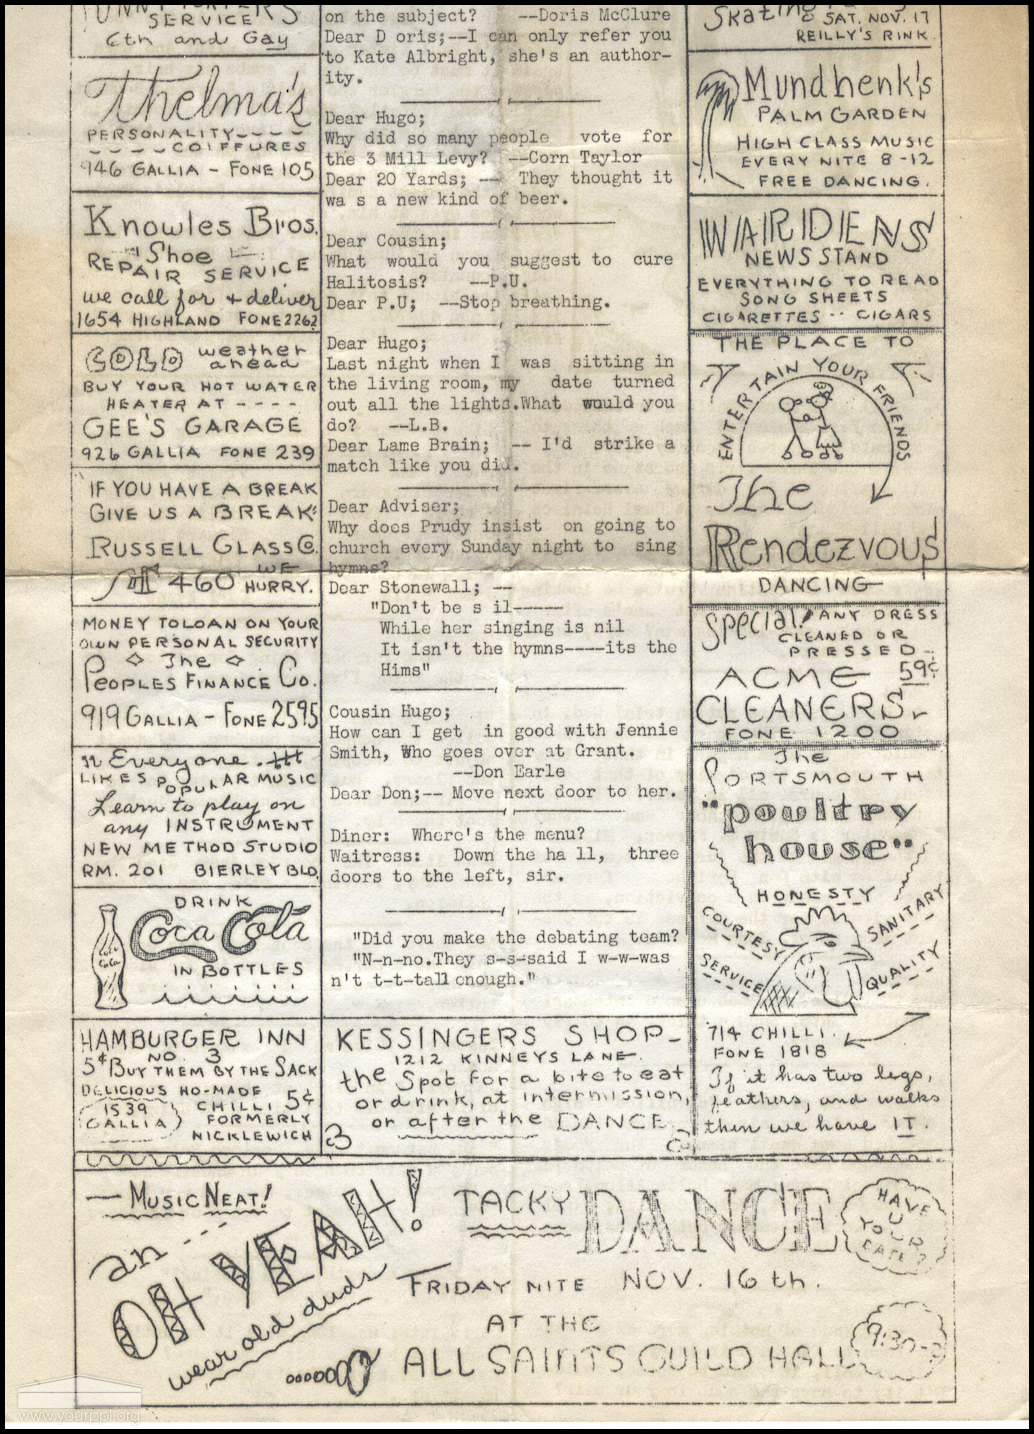 SERVICE
6th and Gay
Thelma's
PERSONALITY----
----COIFFURES
946 GALLIA - FONE 105
Knowles Bros.
Shoe
REPAIR SERVICE
we call for + deliver
1654 HIGHLAND FONE 2262
COLD weather
ahead
BUY YOUR HOT WATER
HEATER AT ----
GEE'S GARAGE
926 GALLIA FONE 239
IF YOU HAVE A BREAK
GIVE US A BREAK!
RUSSELL GLASS Co.
460 WE
HURRY.
MONEY TO LOAN ON YOUR
OWN PERSONAL SECURITY
The
PEOPLES FINANCE CO.
919 GALLIA - FONE 2595
Everyone
LIKES POPULAR MUSIC
Learn to play on
any INSTRUMENT
NEW METHOD STUDIO
RM. 201 BIERLEY BLD.
DRINK
Coca Cola
IN BOTTLES
HAMBURGER INN
NO. 3
5¢ BUY THEM BY THE SACK
DELICIOUS HO-MADE
CHILLI 5¢
1539
GALLIA
FORMERLY
NICKLEWICH
on the subject? --Doris McClure
Dear D oris;--I can only refer you
to Kate Albright, she's an author-
ity.
Dear Hugo;
Why did so many people vote for
the 3 Mill Levy? --Corn Taylor
Dear 20 Yards; -- They thought it
wa s a new kind of beer.
Dear Cousin;
What would you suggest to cure
Halitosis? --P.U.
Dear P.U; --Stop breathing.
Dear Hugo;
Last night when I was sitting in
the living room, my date turned
out all the lights.What would you
do? --L.B.
Dear Lame Brain; -- I'd strike a
match like you did.
Dear Adviser;
Why does Prudy insist on going to
church every Sunday night to sing
hymns?
Dear Stonewall; --
"Don't be s il-----
While her singing is nil
It isn't the hymns----its the
Hims"
Cousin Hugo;
How can I get in good with Jennie
Smith, Who goes over at Grant.
--Don Earle
Dear Don;-- Move next door to her.
Diner: Where's the menu?
Waitress: Down the ha ll, three
doors to the left, sir.
"Did you make the debating team?
"N-n-no.They s-s-said I w-w-was
n't t-t-tall enough."
KESSINGERS SHOP-
1212 KINNEYS LANE.
the Spot for a bite to eat
or drink, at intermission,
or after the DANCE.
Skating
SAT. NOV. 17
REILLY'S RINK.
Mundhenk's
PALM GARDEN
HIGH CLASS MUSIC
EVERY NITE 8-12
FREE DANCING.
WARDENS
NEWS STAND
EVERYTHING TO READ
SONG SHEETS
CIGARETTES -- CIGARS
THE PLACE TO
ENTERTAIN YOUR FRIENDS
The
Rendezvous
DANCING
Special! ANY DRESS
CLEANED OR
PRESSED-
59¢
ACME
CLEANERS
FONE 1200
The
PORTSMOUTH
"poultry
house"
HONESTY
COURTESY
SANITARY
SERVICE
QUALITY
714 CHILLI.
FONE 1818
If it has two legs,
feathers, and walks
then we have IT.
—MUSIC NEAT!
an --
OH YEAH!
wear old duds
TACKY DANCE
HAVE
YOUR
DATE?
FRIDAY NITE NOV. 16th.
AT THE
ALL SAINTS GUILD HALL
www.yourppl.org